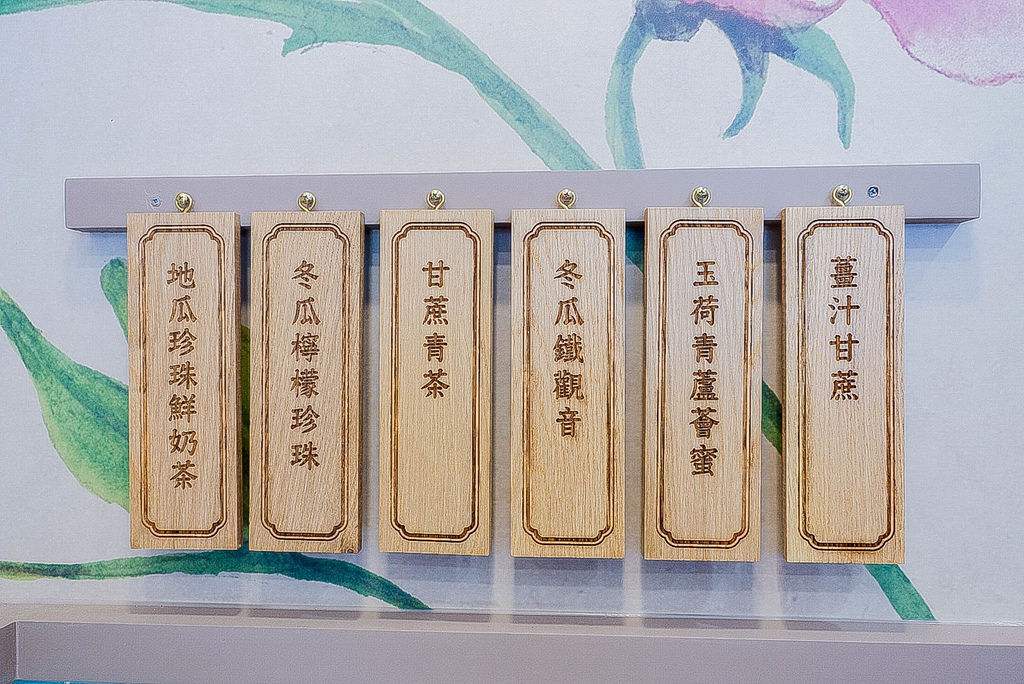 地瓜珍珠鮮奶茶
冬瓜檸檬珍珠
甘蔗青茶
冬瓜鐵觀音
玉荷青蘆薈蜜
薑汁甘蔗